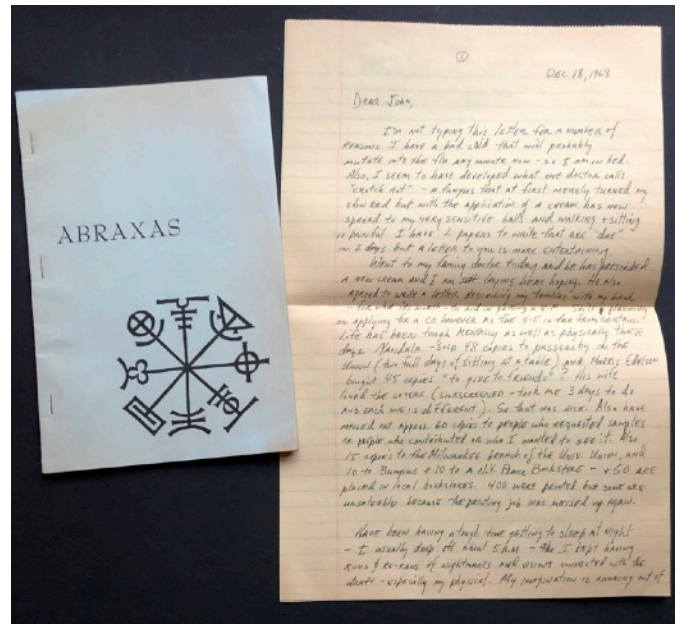 ABRAXAS
①
DEC. 18, 1968
Dear John,
I'm not typing this letter for a number of
reasons. I have a bad cold that will probably
mutate into the flu any minute now - so I am in bed.
Also, I seem to have developed what one doctor calls
"crotch rot" - a fungus that at first merely turned my
skin red but with the application of a cream has now
spread to my very sensitive balls and walking + sitting
is painful. I have 2 papers to write that are "due"
in 2 days but a letter to you is more entertaining.
Went to my family doctor today and he has prescribed
a new cream and I am laying here hoping. He also
agreed to write a letter describing my troubles with my back
- for what its worth - to aid in getting a 4-F. Still planning
on applying for a CO however as the 4-F is far from certain!
Life has been tough mentally as well as physically these
days. Mandala - sold 48 copies to passersby in the
Union (two full days of sitting at a table) and Morris Edelson
bought 45 copies "to give to friends"? His wife
loved the covers (silkscreened - took me 3 days to do
and each one is different). So that was nice. Also have
mailed out approx. 60 copies to people who requested samples
or people who contributed or who I wanted to see it. Also
15 copies to the Milwaukee branch of the Univ. Union, and
10 to Bumpus + 10 to a N.Y. Peace Bookstore - + 50 are
placed in local bookstores. 400 were printed but some are
unsaleable because the printing job was messed up again.
Have been having a tough time getting to sleep at night
- I usually drop off about 5 A.M. - I kept having
runs & re-runs of nightmares and visions connected with the
draft - especially my physical. My imagination is running out of